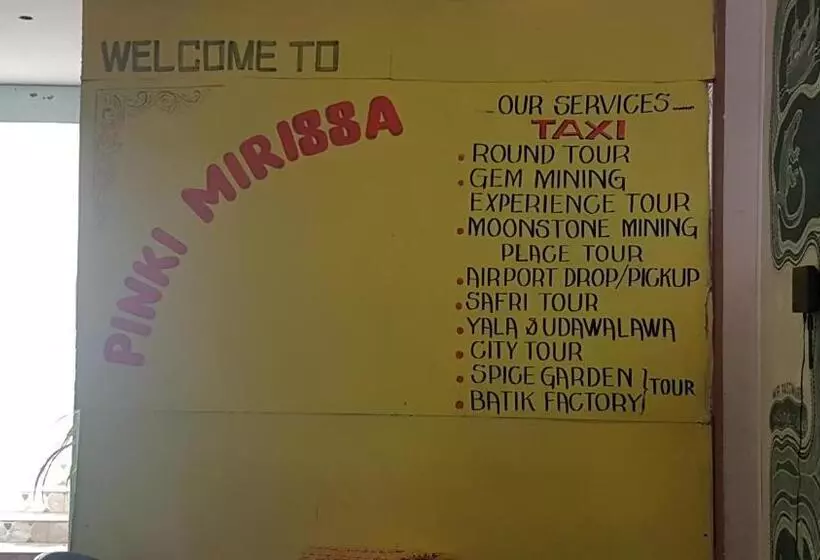 WELCOME TO
PINKI MIRISSA
OUR SERVICES
TAXI
ROUND TOUR
GEM MINING
EXPERIENCE TOUR
MOONSTONE MINING
PLACE TOUR
AIRPORT DROP/PICKUP
SAFRI TOUR
YALA & UDAWALAWA
CITY TOUR
SPICE GARDEN } TOUR
BATIK FACTORY